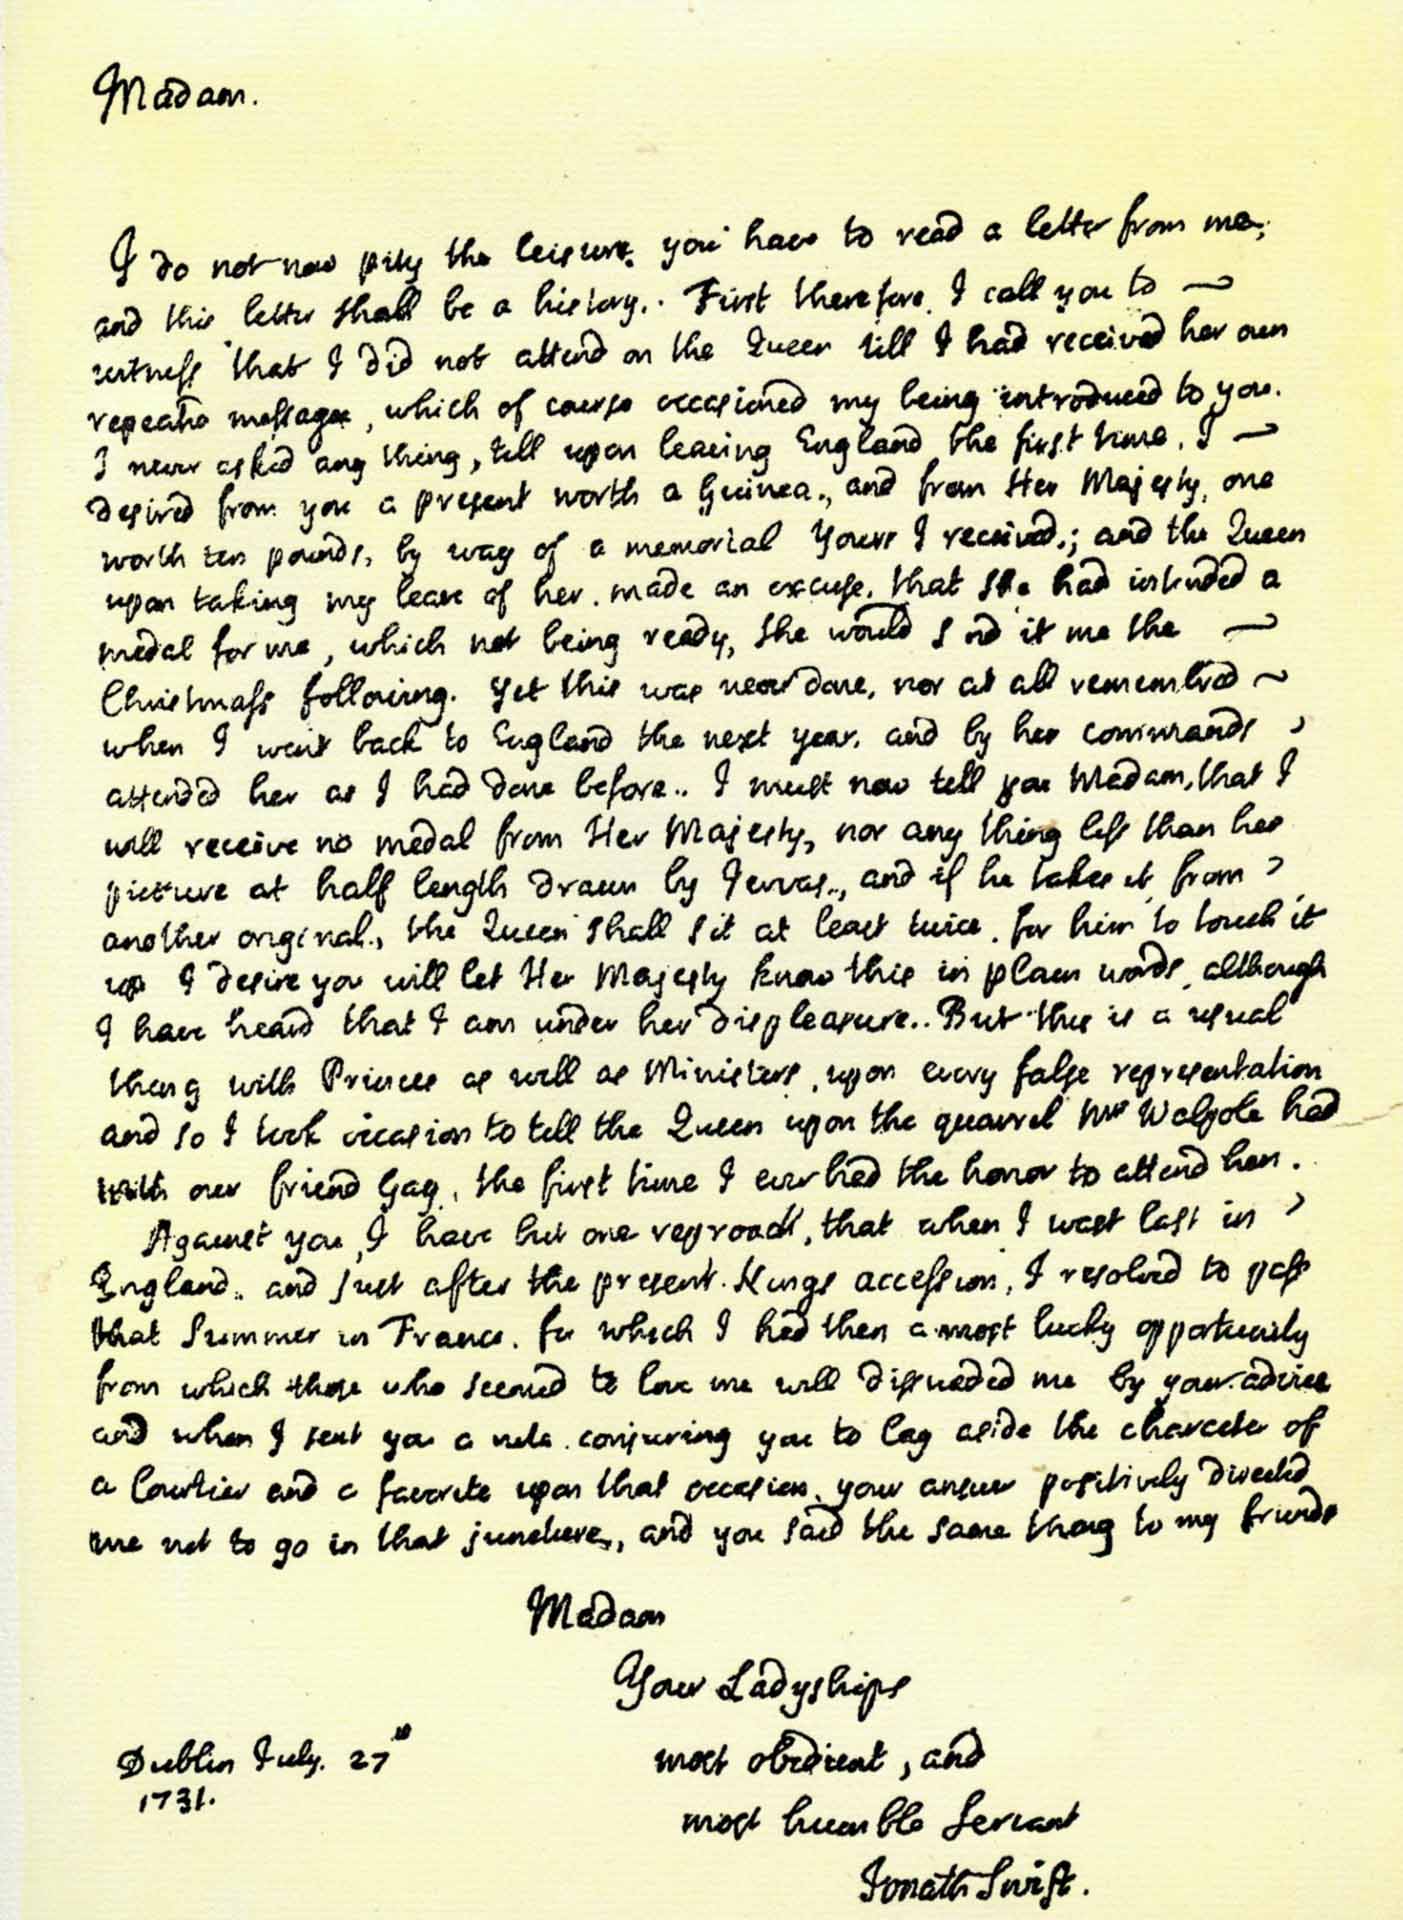 Madam.
I do not now pity the leisure you have to read a letter from me;
and this letter shall be a history.. First therefore, I call you to
witness that I did not attend on the Queen till I had received her own
repeated messages, which of course occasioned my being introduced to you.
I never asked any thing, till upon leaving England the first time, I
desired from you a present worth a Guinea., and from Her Majesty, one
worth ten pounds, by way of a memorial Yours I received.; and the Queen
upon taking my leave of her. made an excuse, that she had intended a
medal for me, which not being ready, she would s nd it me the
Christmass following. Yet this was never done, nor at all remembred
when I went back to England the next year, and by her commands
attended her as I had done before.. I must now tell you Madam, that I
will receive no medal from Her Majesty, nor any thing less than her
picture at half length drawn by Jervas., and if he takes it from
another original., the Queen shall sit at least twice. for him to touch it
up I desire you will let Her Majesty know this in plain words, although
I have heard that I am under her displeasure.. But this is a usual
thing with Princes as well as Ministers, upon every false representation
and so I took occasion to tell the Queen upon the quarrel Mr Walpole had
with our friend Gay, the first time I ever had the honor to attend her.
Against you, I have but one reproach, that when I was last in
England.. and just after the present Kings accession, I resolved to pass
that Summer in France. for which I had then a most lucky opportunity
from which those who seemed to love me well dissuaded me by your advice
and when I sent you a note. conjuring you to lay aside the character of
a Courtier and a favorite upon that occasion, your answer positively directed
me not to go in that juncture, and you said the same thing to my friends
Madam
Your Ladyships
most obedient, and
most humble Servant
Jonath Swift.
Dublin July. 27th
1731.